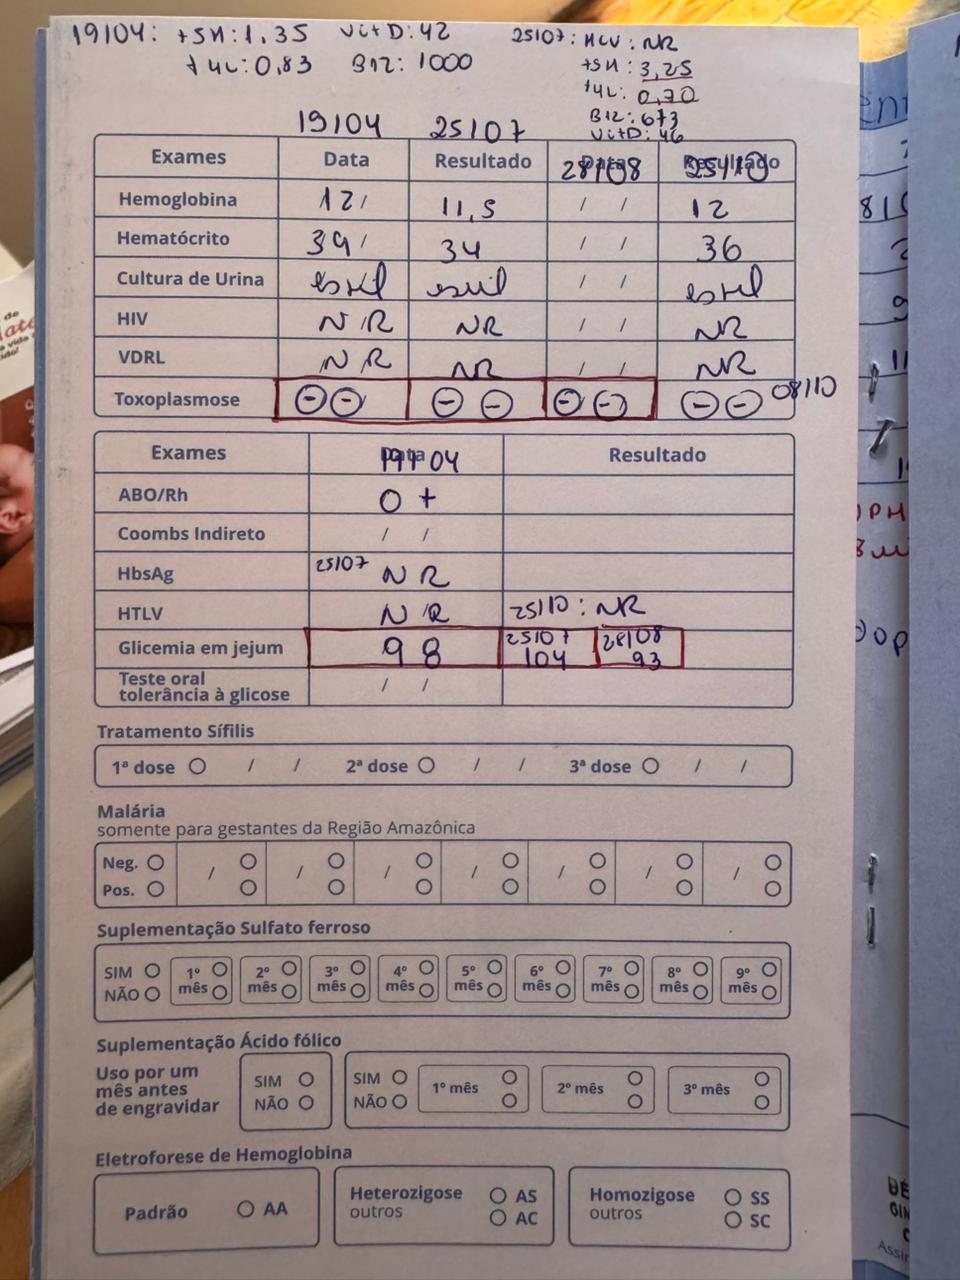 19/04: TSH: 1,35 Vit D: 42 25/07: HCV: NR
T4L: 0,83 B12: 1000 TSH: 3,25
T4L: 0,70
B12: 673
Vit D: 46
19/04 25/07
Exames Data Resultado 28/08 25/10
Hemoglobina 12/ 11,5 / / 12
Hematócrito 39/ 34 / / 36
Cultura de Urina estéril estéril / / estéril
HIV NR NR / / NR
VDRL NR NR / / NR
Toxoplasmose ⊖ ⊖ ⊖ ⊖ ⊖ ⊖ ⊖ ⊖ 08/10
Exames Data 19/04 Resultado
ABO/Rh O +
Coombs Indireto / /
HbsAg 25/07 NR
HTLV NR 25/10: NR
Glicemia em jejum 98 25/07 104 28/08 93
Teste oral
tolerância à glicose / /
Tratamento Sífilis
1ª dose / / 2ª dose / / 3ª dose / /
Malária
somente para gestantes da Região Amazônica
Neg. / / / / / / /
Pos.
Suplementação Sulfato ferroso
SIM 1º 2º 3º 4º 5º 6º 7º 8º 9º
NÃO mês mês mês mês mês mês mês mês mês
Suplementação Ácido fólico
Uso por um
mês antes
de engravidar
SIM SIM 1º mês 2º mês 3º mês
NÃO NÃO
Eletroforese de Hemoglobina
Padrão AA
Heterozigose AS
outros AC
Homozigose SS
outros SC